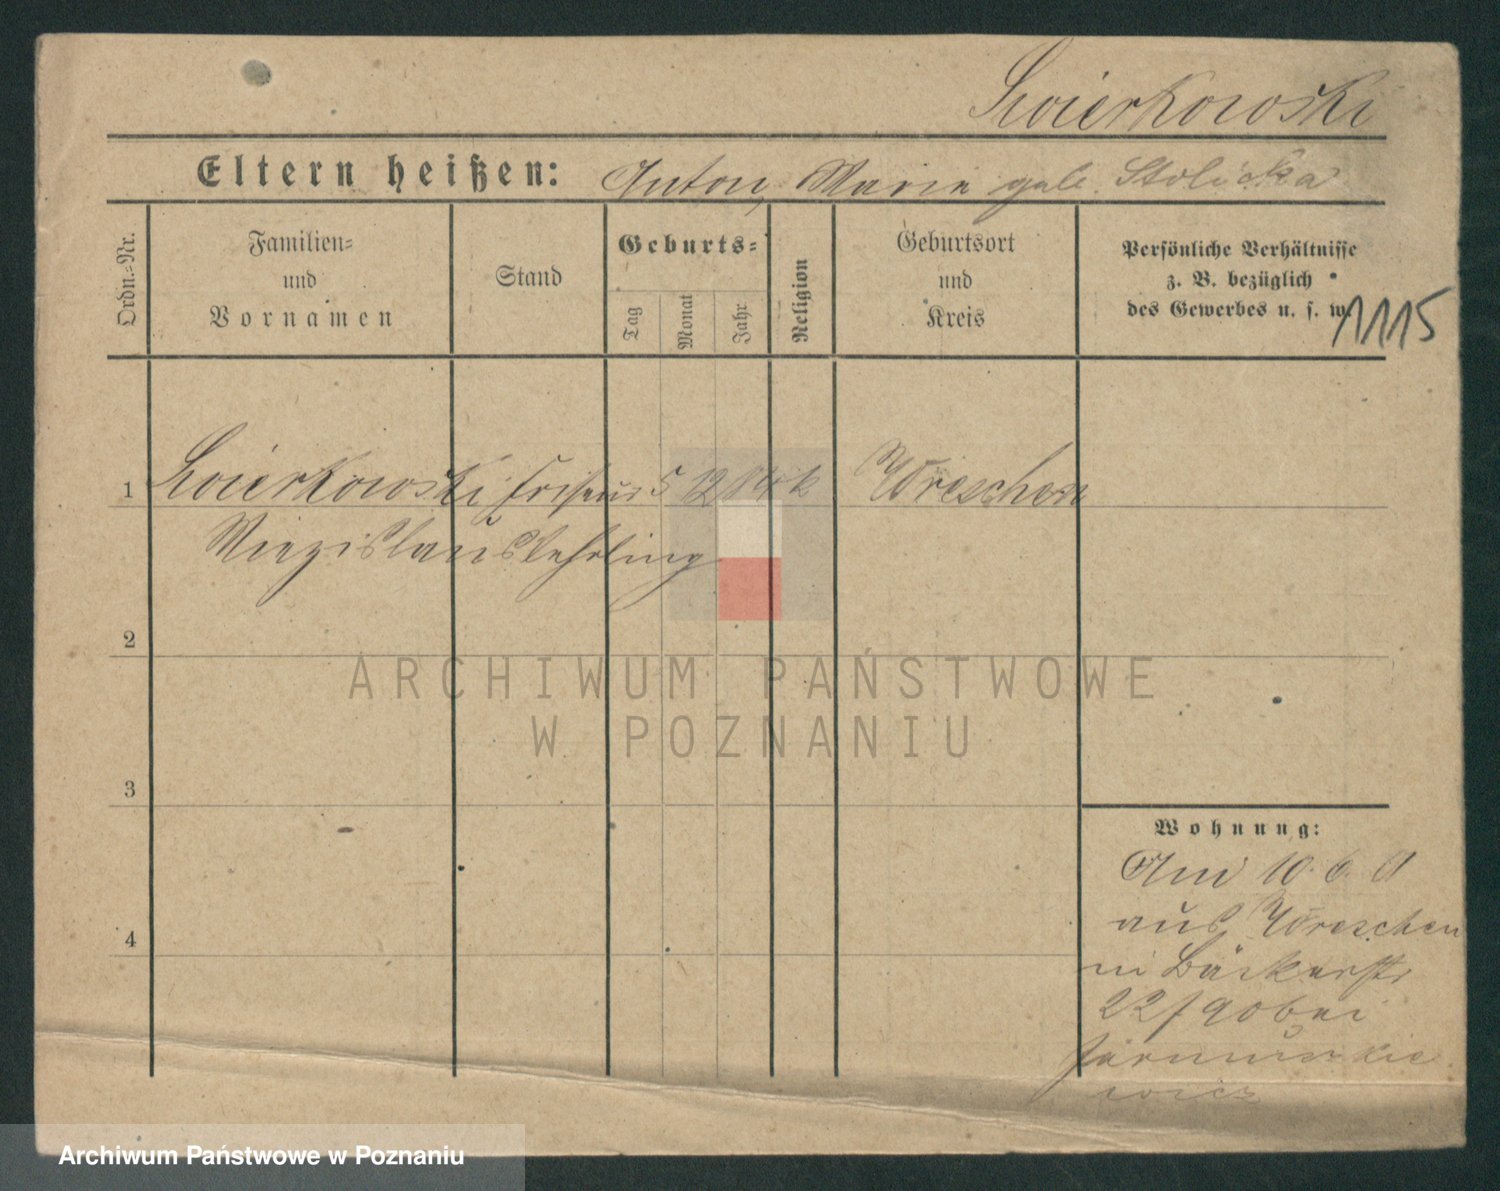 Swierkowski
Eltern heißen: Anton, Marie geb. Stolicka
Ordn.=Nr.
Familien=
und
Vornamen
Stand
Geburts=
Tag
Monat
Jahr
Religion
Geburtsort
und
Kreis
Persönliche Verhältnisse
z. B. bezüglich
des Gewerbes u. s. w.
1115
1 Swierkowski Friseur 5 12 k Wreschen
Miezislaus Lehrling
2
3
4
Wohnung:
Am 10. 6.
aus Wreschen
in Bäckerstr
22/
ARCHIWUM PAŃSTWOWE
W POZNANIU
Archiwum Państwowe w Poznaniu